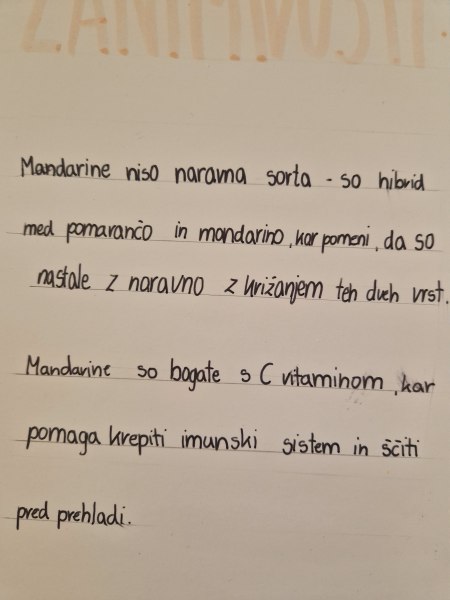 ZANIMIVOSTI
Mandarine niso naravna sorta - so hibrid
med pomarančo in mandarino, kar pomeni, da so
nastale z naravno z križanjem teh dveh vrst.
Mandarine so bogate s C vitaminom, kar
pomaga krepiti imunski sistem in ščiti
pred prehladi.